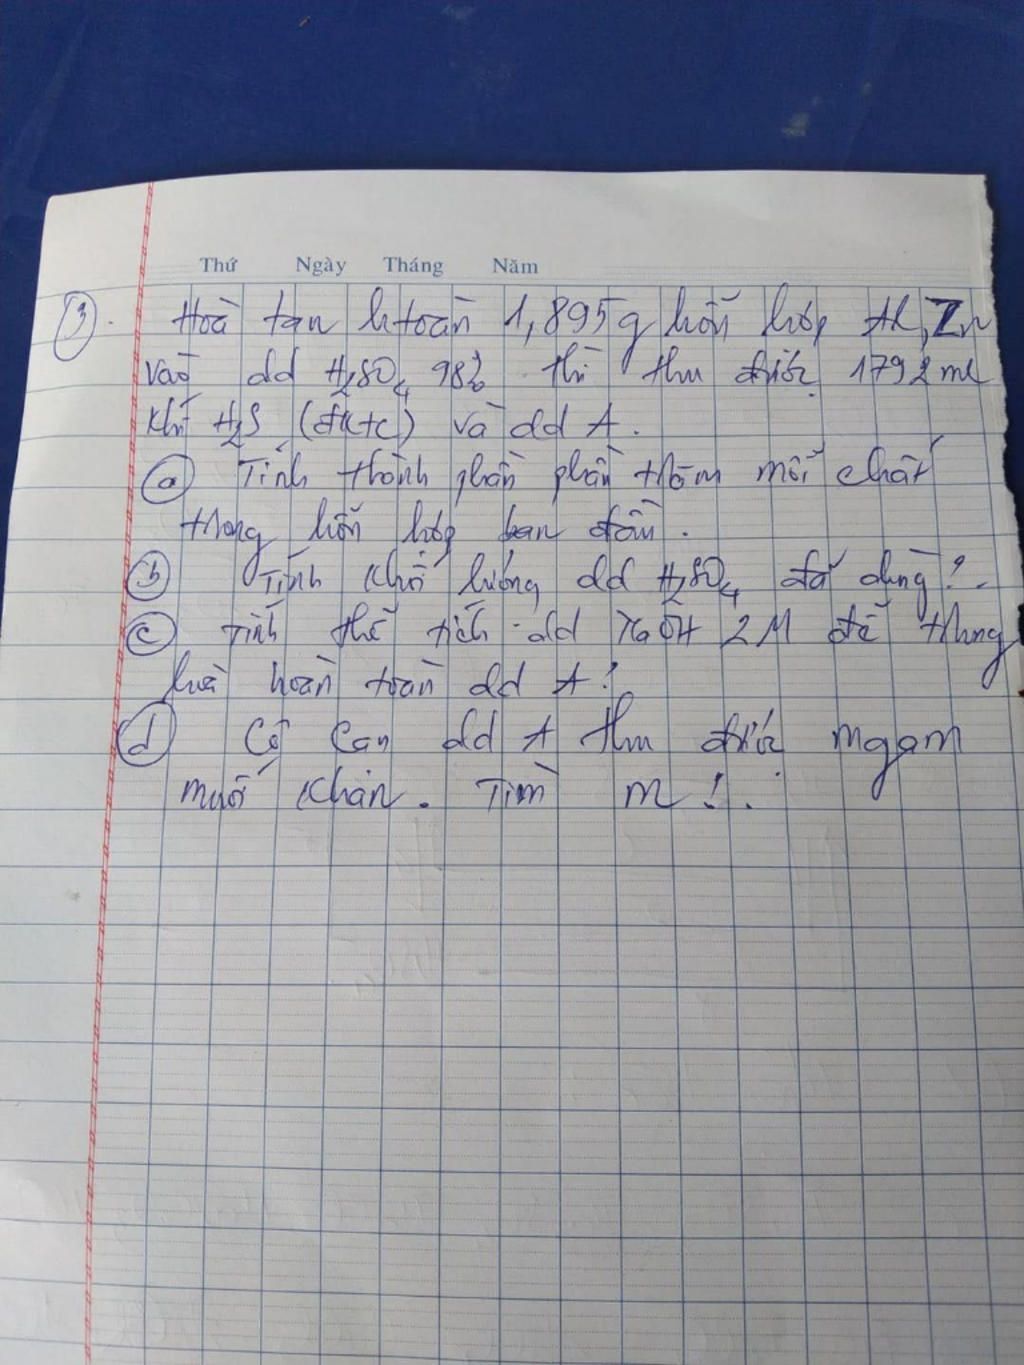 Thứ Ngày Tháng Năm
3. Hoà tan htoàn 1,895g hỗn hợp Al, Zn
vào dd H₂SO₄ 98% thì thu được 1792ml
khí H₂S (đktc) và dd A.
a Tính thành phần phần trăm mỗi chất
trong hỗn hợp ban đầu.
b Tính khối lượng dd H₂SO₄ đã dùng?.
c Tính thể tích dd NaOH 2M để trung
hoà hoàn toàn dd A?
d Cô cạn dd A thu được mgam
muối khan. Tìm m!.